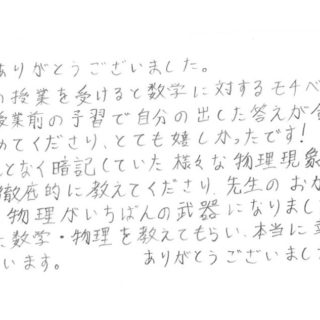 ありがとうございました。
の授業を受けると数学に対するモチベ
授業前の予習で自分の出した答えが
めてくださり、とても嬉しかったです!
となく暗記していた様々な物理現象
徹底的に教えてくださり、先生のおか
物理がいちばんの武器になりまし
数学・物理を教えてもらい、本当に
います。 ありがとうございまし